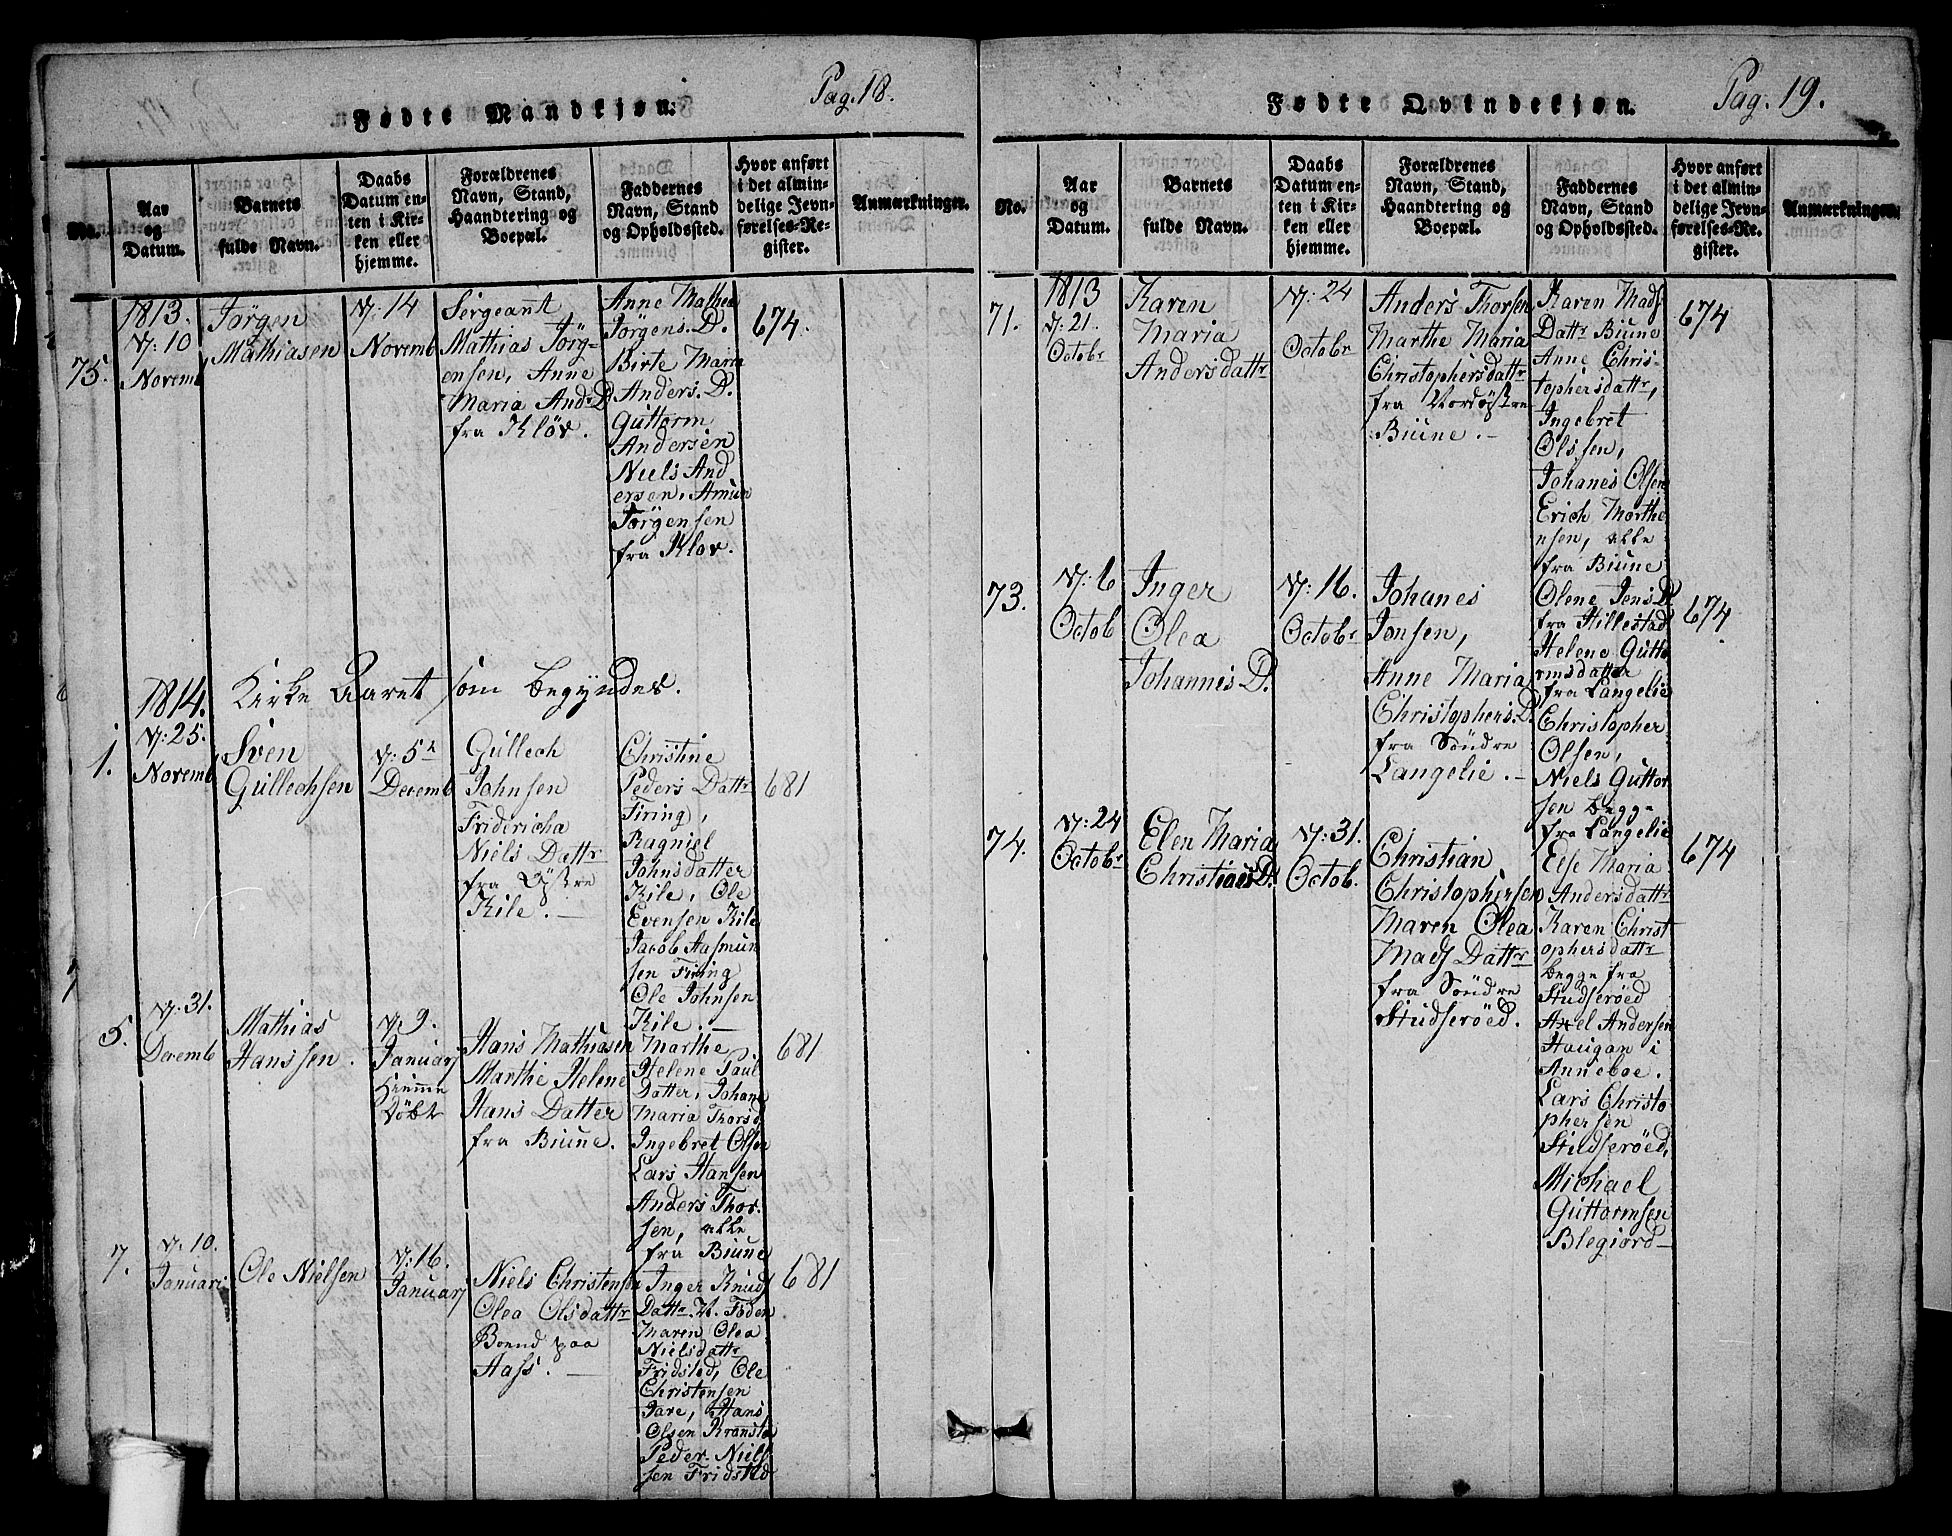 Pag. 18.
Fødte Mandkjøn.
No.
Aar
og
Datum.
Barnets
fulde Navn.
Daabs
Datum en-
ten i Kir-
ken eller
hjemme.
Forældrenes
Navn, Stand,
Haandtering og
Boepæl.
Faddernes
Navn, Stand
og Opholdssted.
Hvor anført
i det almin-
delige Jevn-
førelses-Re-
gister.
Anmærkninger.
75.
1813.
d: 10
Novemb
Jørgen
Mathiasen
d: 14
Novemb
Sergeant
Mathias Jörg-
ensen, Anne
Maria And: D
fra Kløv.
Anne Mathea
Jörgens. D.
Birte Maria
Anders. D.
Guttorm
Andersen
Niels And
ersen, Amun
Jörgensen
fra Klov.
674.
1814. Kirke Aaret som begyndes.
1.
d: 25.
Novemb
Sven
Gullechsen
d: 5te
Decemb
Gullech
Johnsen
Fridericha
Niels Dattr
fra Østre
Kile.
Christine
Peders Dattr
Firing,
Ragniel
Johnsdatter
Kile, Ole
Evensen Kile
Jacob Aasmun
sen Firing
Ole Johnsen
Kile.
681
5.
d: 31.
Decemb
Mathias
Hanssen.
d: 9.
Januarj
Hiemme
Döbt
Hans Mathiasen
Marthe Helene
Hans Datter
fra Biune.
Marthe
Helene Paul
Datter, Johane
Maria Thorsd
Ingebret Olsen
Lars Hansen
Anders Thor-
sen, alle
fra Biune
681
7.
d: 10.
Januari
Ole Nielsen
d: 16.
Januarj
Niels Christensen
Olea Olsdattr
Boend paa
Aass.
Inger Knuds
Dattr. V. Foden
Maren Olea
Nielsdattr
Fridsted, Ole
Christensen
Jare, Hans
Olsen
Peder Niels
sen Fridsted
681
Pag. 19.
Fødte Qvindekjøn.
No.
Aar
og
Datum.
Barnets
fulde Navn.
Daabs
Datum en-
ten i Kir-
ken eller
hjemme.
Forældrenes
Navn, Stand,
Haandtering og
Boepæl.
Faddernes
Navn, Stand
og Opholdssted.
Hvor anført
i det almin-
delige Jevn-
førelses-Re-
gister.
Anmærkninger.
71.
1813
d: 21.
Octobr
Karen
Maria
Andersdattr
d: 24
Octobr
Anders Thorsen
Marthe Maria
Christophersdattr
fra Nordöstre
Biune.
Karen Mads
Dattr Biune
Anne Chris-
tophersdattr,
Ingebret
Olssen,
Johanes Olsen
Erich Morthe
nsen, alle
fra Biune
674
73.
d: 6
Octob
Inger
Olea
Johannes D.
d: 16.
Octobr
Johanes
Jonsen,
Anne Maria
Christophers. D.
fra Söndre
Langelie.
Olene Jens D.
fra Hillestad
Helene Gutto
rmsdatter
fra Langelie
Christopher
Olsen,
Niels Guttor
sen begge
fra Langelie
674
74.
d: 24
Octobr
Elen Maria
Christians D.
d: 31.
Octob.
Christian
Christophersen
Maren Olea
Mads Dattr
fra Söndre
Studseröed.
Else Maria
Andersdattr
Karen Christ
ophersdattr
begge fra
Studseröed
Axel Andersen
Haugan i
Anneboe.
Lars Christo
phersen
Studseröed,
Michael
Guttormsen
Blegiord
674